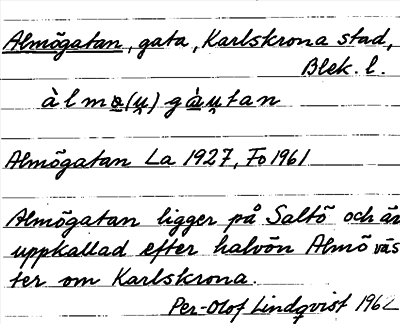 Almögatan, gata, Karlskrona stad,
Blek. l.
àlmo̲(u̯) gà̲u̯tan
Almögatan La 1927, Fo 1961
Almögatan ligger på Saltö och är
uppkallad efter halvön Almö väs
ter om Karlskrona.
Per-Olof Lindqvist 1962